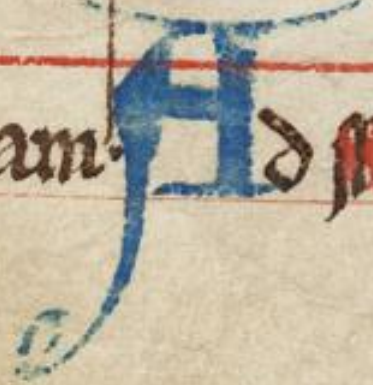 am. Ad